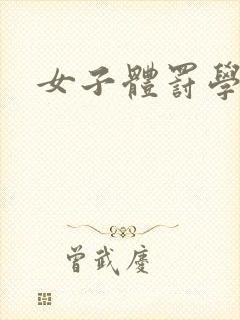 女子體罰學
曾武慶